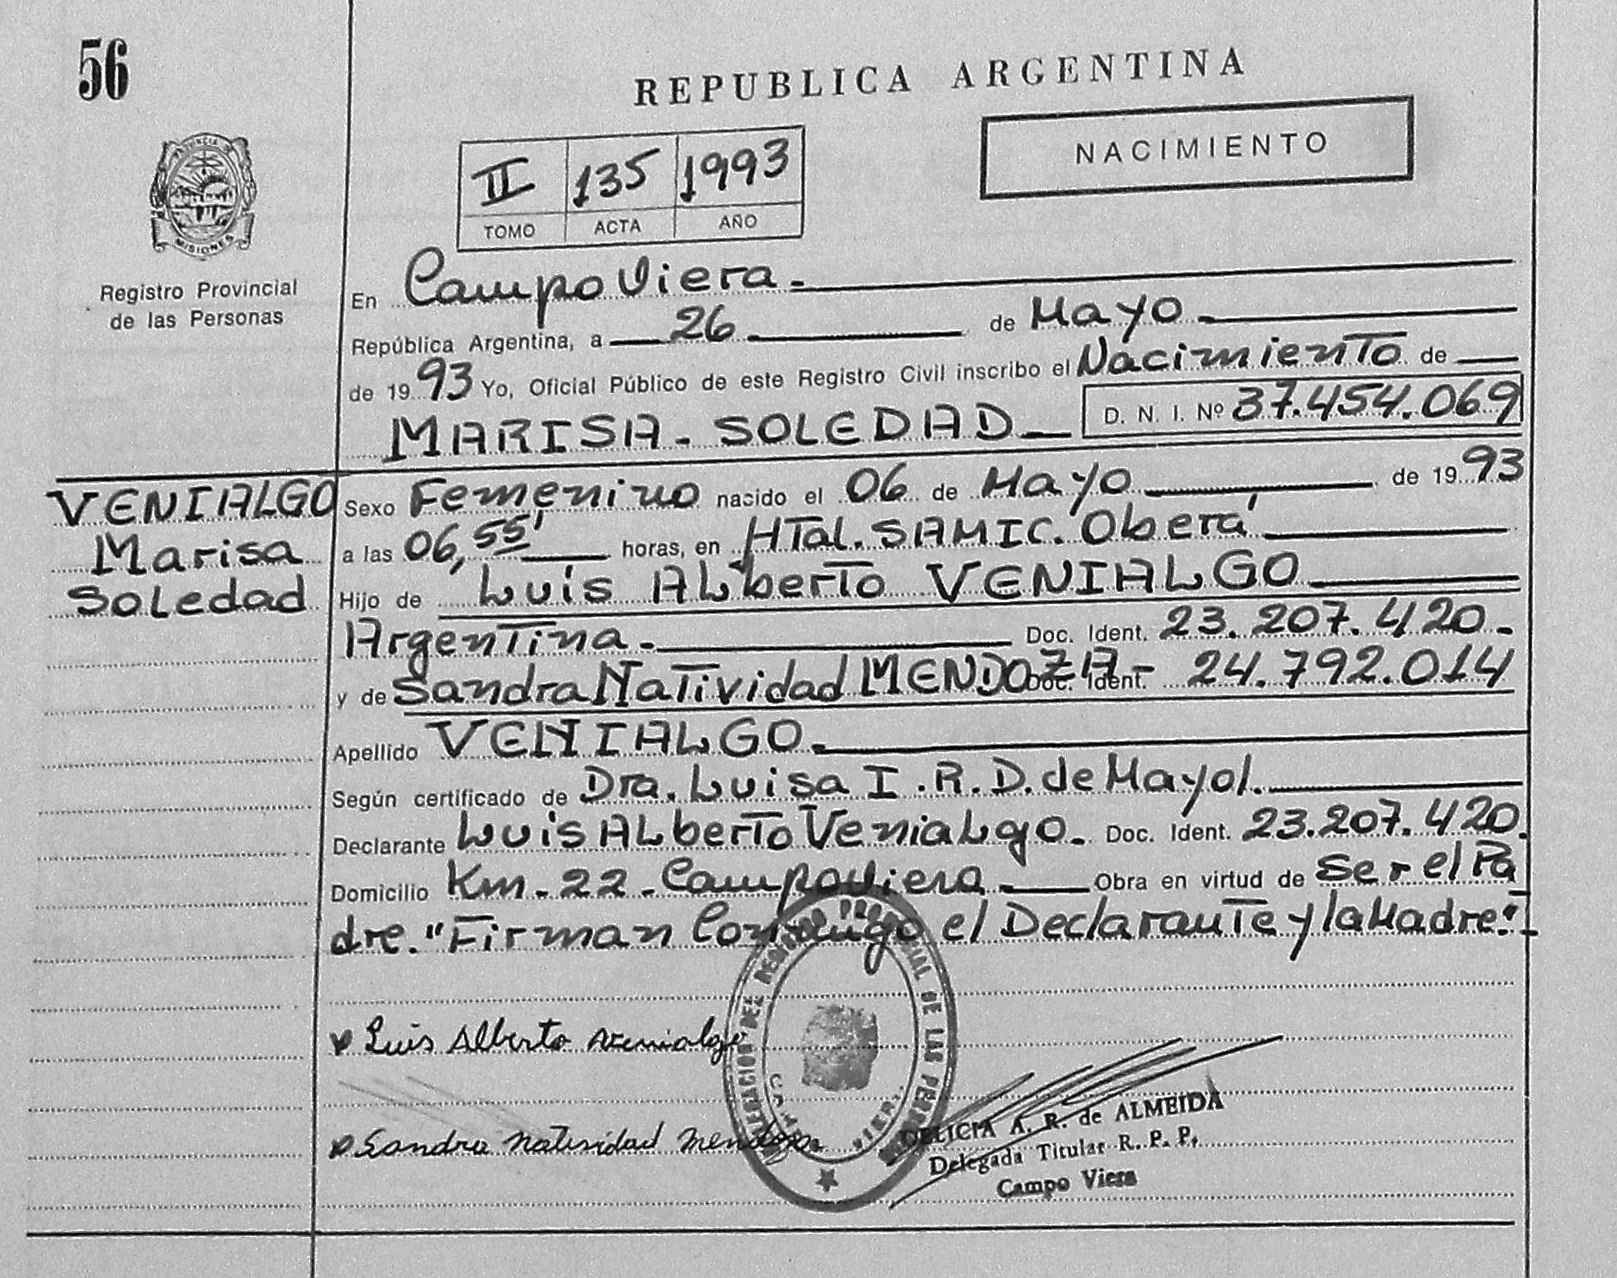 56
REPUBLICA ARGENTINA
NACIMIENTO
II 135 1993
TOMO ACTA AÑO
PROVINCIA DE
MISIONES
Registro Provincial
de las Personas
En Campo Viera.-
República Argentina, a 26 de Mayo
de 1993 Yo, Oficial Público de este Registro Civil inscribo el Nacimiento de
MARISA - SOLEDAD D. N. I. Nº 37.454.069
VENIALGO
Marisa
Soledad
Sexo Femenino nacido el 06 de Mayo de 1993
a las 06,55' horas, en HTal. SAMIC. Oberá
Hijo de Luis ALberto VENIALGO
Argentina.- Doc. Ident. 23.207.420.-
y de Sandra Natividad MENDOZA- Doc. Ident. 24.792.014
Apellido VENIALGO.-
Según certificado de Dra. Luisa I. R. D. de Mayol.
Declarante Luis ALberto VeniaLgo. Doc. Ident. 23.207.420.
Domicilio Km - 22 - Campo Viera.- Obra en virtud de ser el Pa
dre. "Firman Conmigo el Declarante y la Madre".-
Luis Alberto Venialgo
Sandra Natividad Mendoza
DEL REGISTRO PROVINCIAL DE LAS PERSONAS
DELICIA A. R. de ALMEIDA
Delegada Titular R. P. P.
Campo Viera